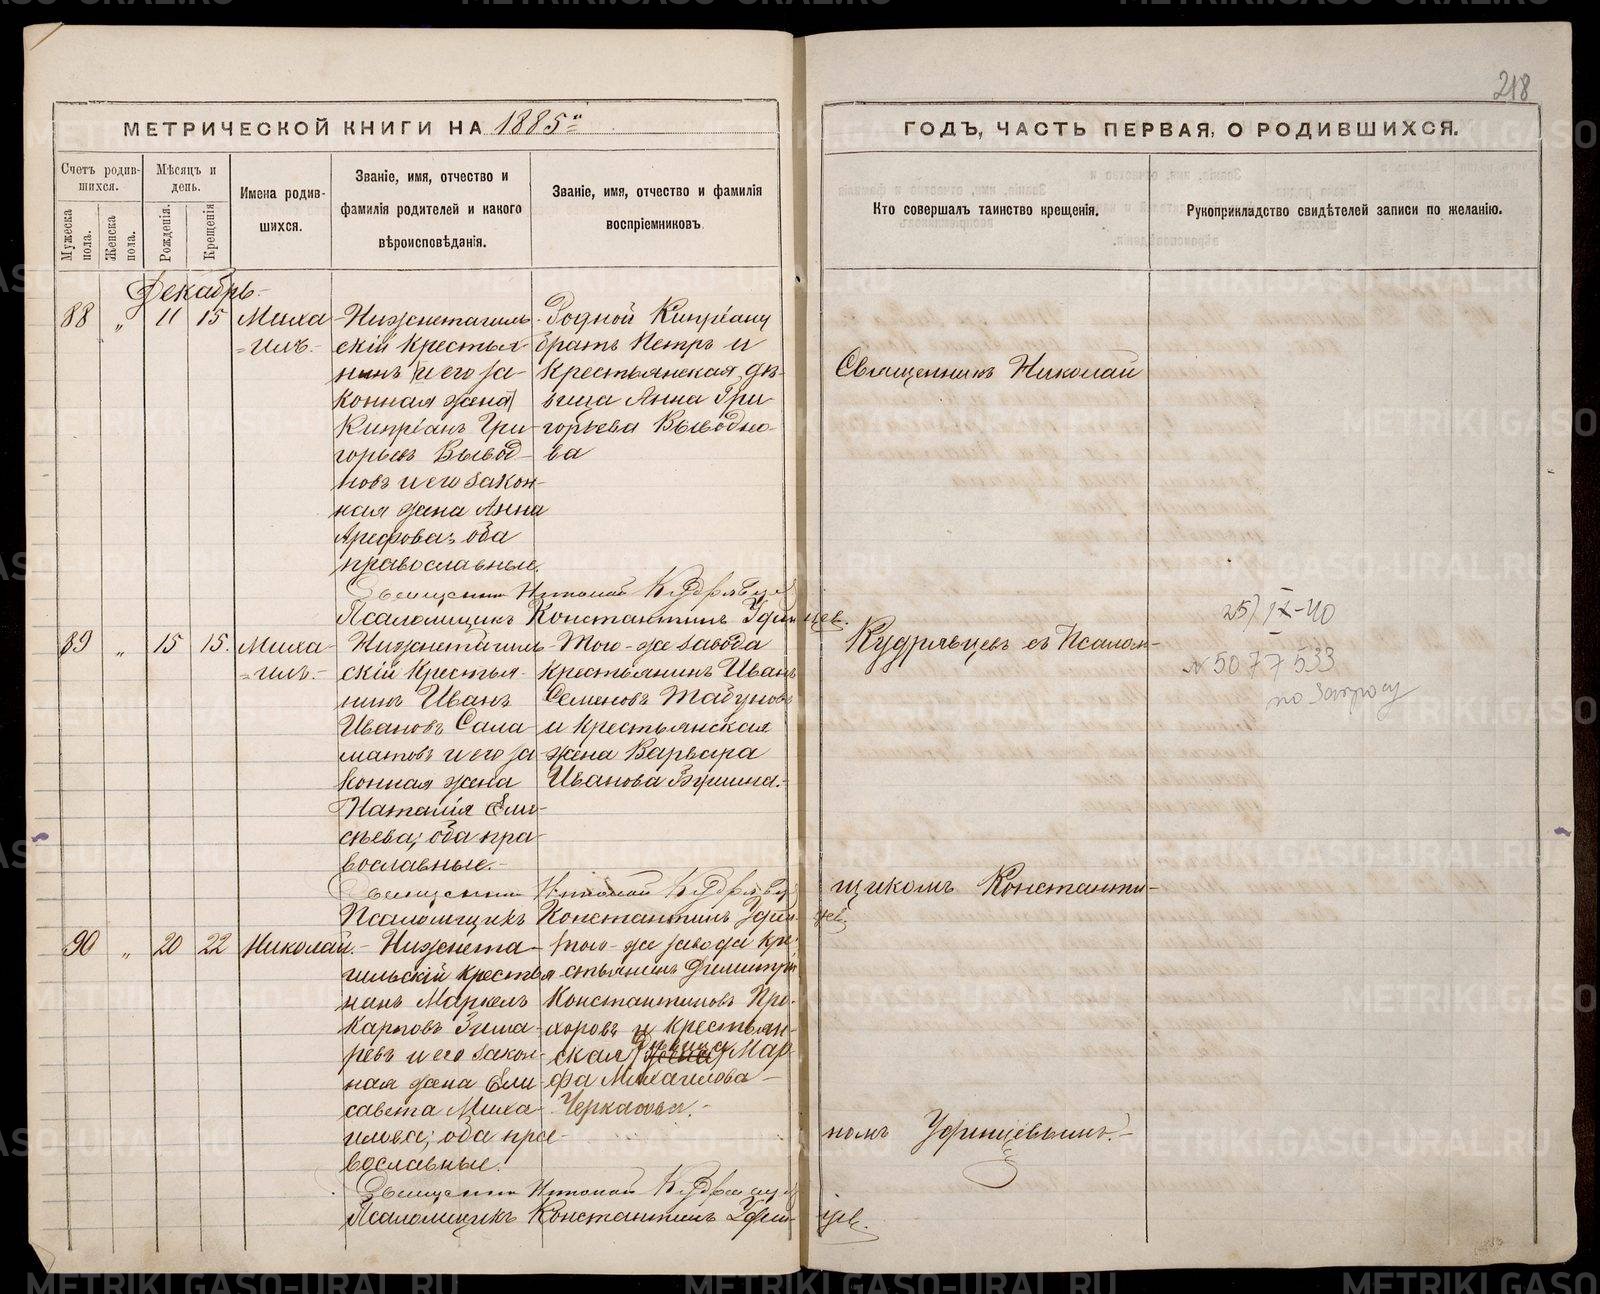 218
МЕТРИЧЕСКОЙ КНИГИ НА 1885й
ГОДЪ, ЧАСТЬ ПЕРВАЯ, О РОДИВШИХСЯ.
Счетъ родив-
шихся.
Мужеска пола.
Женска пола.
Мѣсяцъ и
день.
Рожденія.
Крещенія
Имена родив-
шихся.
Званіе, имя, отчество и
фамилія родителей и какого
вѣроисповѣданія.
Званіе, имя, отчество и фамилія
воспріемниковъ.
Кто совершалъ таинство крещенія.
Рукоприкладство свидѣтелей записи по желанію.
Декабрь
88 " 11 15 Миха
илъ.
Нижнетагиль
скій крестья-
нинъ (и его за-
конная жена)
Кипріанъ Гри-
горьевъ Вывод-
новъ и его закон-
ная жена Анна
Арефова; оба
православные.
Родной Кипріану
братъ Петръ и
крестьянская дѣ-
вица Анна Гри
горьева Выводно-
ва
Священникъ Николай Кудрявцев
Псаломщикъ Константинъ Уфинцев.
89 " 15 15. Миха-
илъ.
Нижнетагиль-
скій крестья-
нинъ Иванъ
Ивановъ Сала-
матовъ и его за
конная жена
Наталія Ели-
сѣева; оба пра-
вославные.
Того-же завода
крестьянинъ Иванъ
Семеновъ Табуновъ
и крестьянская
жена Варвара
Иванова
Священникъ Николай Кудрявцев
Псаломщикъ Константинъ Уфинцев.
90 " 20 22 Николай.
Нижнета-
гильскій крестья
нинъ Маркелъ
Карповъ Зима-
ревъ и его закон-
ная жена Ели-
савета Миха-
илова; оба пра-
вославные.
того-же завода кре-
стьянинъ Димитрій
Константиновъ Про-
хоровъ и крестьян-
ская дѣвица Мар-
фа Михаилова
Черкасова.
Священникъ Николай Кудрявцев
Псаломщикъ Константинъ Уфинцев.
Священникъ Николай
Кудрявцевъ съ Псалом-
щикомъ Константи-
номъ Уфинцевымъ.
25/IX-40
№ 5077533
по запросу
METRIKI.GASO-URAL.RU